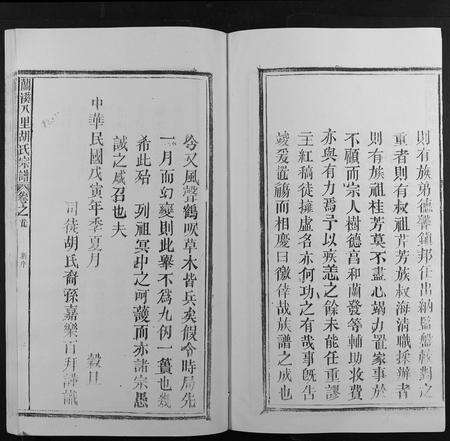 則有族弟德馨鎮邦任出納監慇較對之
重者則有叔祖芹芳族叔海清職採辦者
則有族祖桂芳莫不盡心竭力置家事於
不顧而宗人樹德高和蘭發等輔助收費
亦與有力焉予以孩恙之餘未能任重謬
主紅稿徒擁虛名亦何功之有哉事旣告
竣爰道觴而相慶曰徼倖哉族譜之成也
今又風聲鶴唳草木皆兵矣假令時局先
一月而幻變則此舉不爲九仞一簣也幾
希此殆 列祖冥冥中之呵護而亦諸宗愚
誠之感召也夫
中華民國戊寅年季夏月 穀旦
司徒胡氏裔孫嘉樂百拜謹識
蘭溪八里胡氏宗譜 卷之首 新序